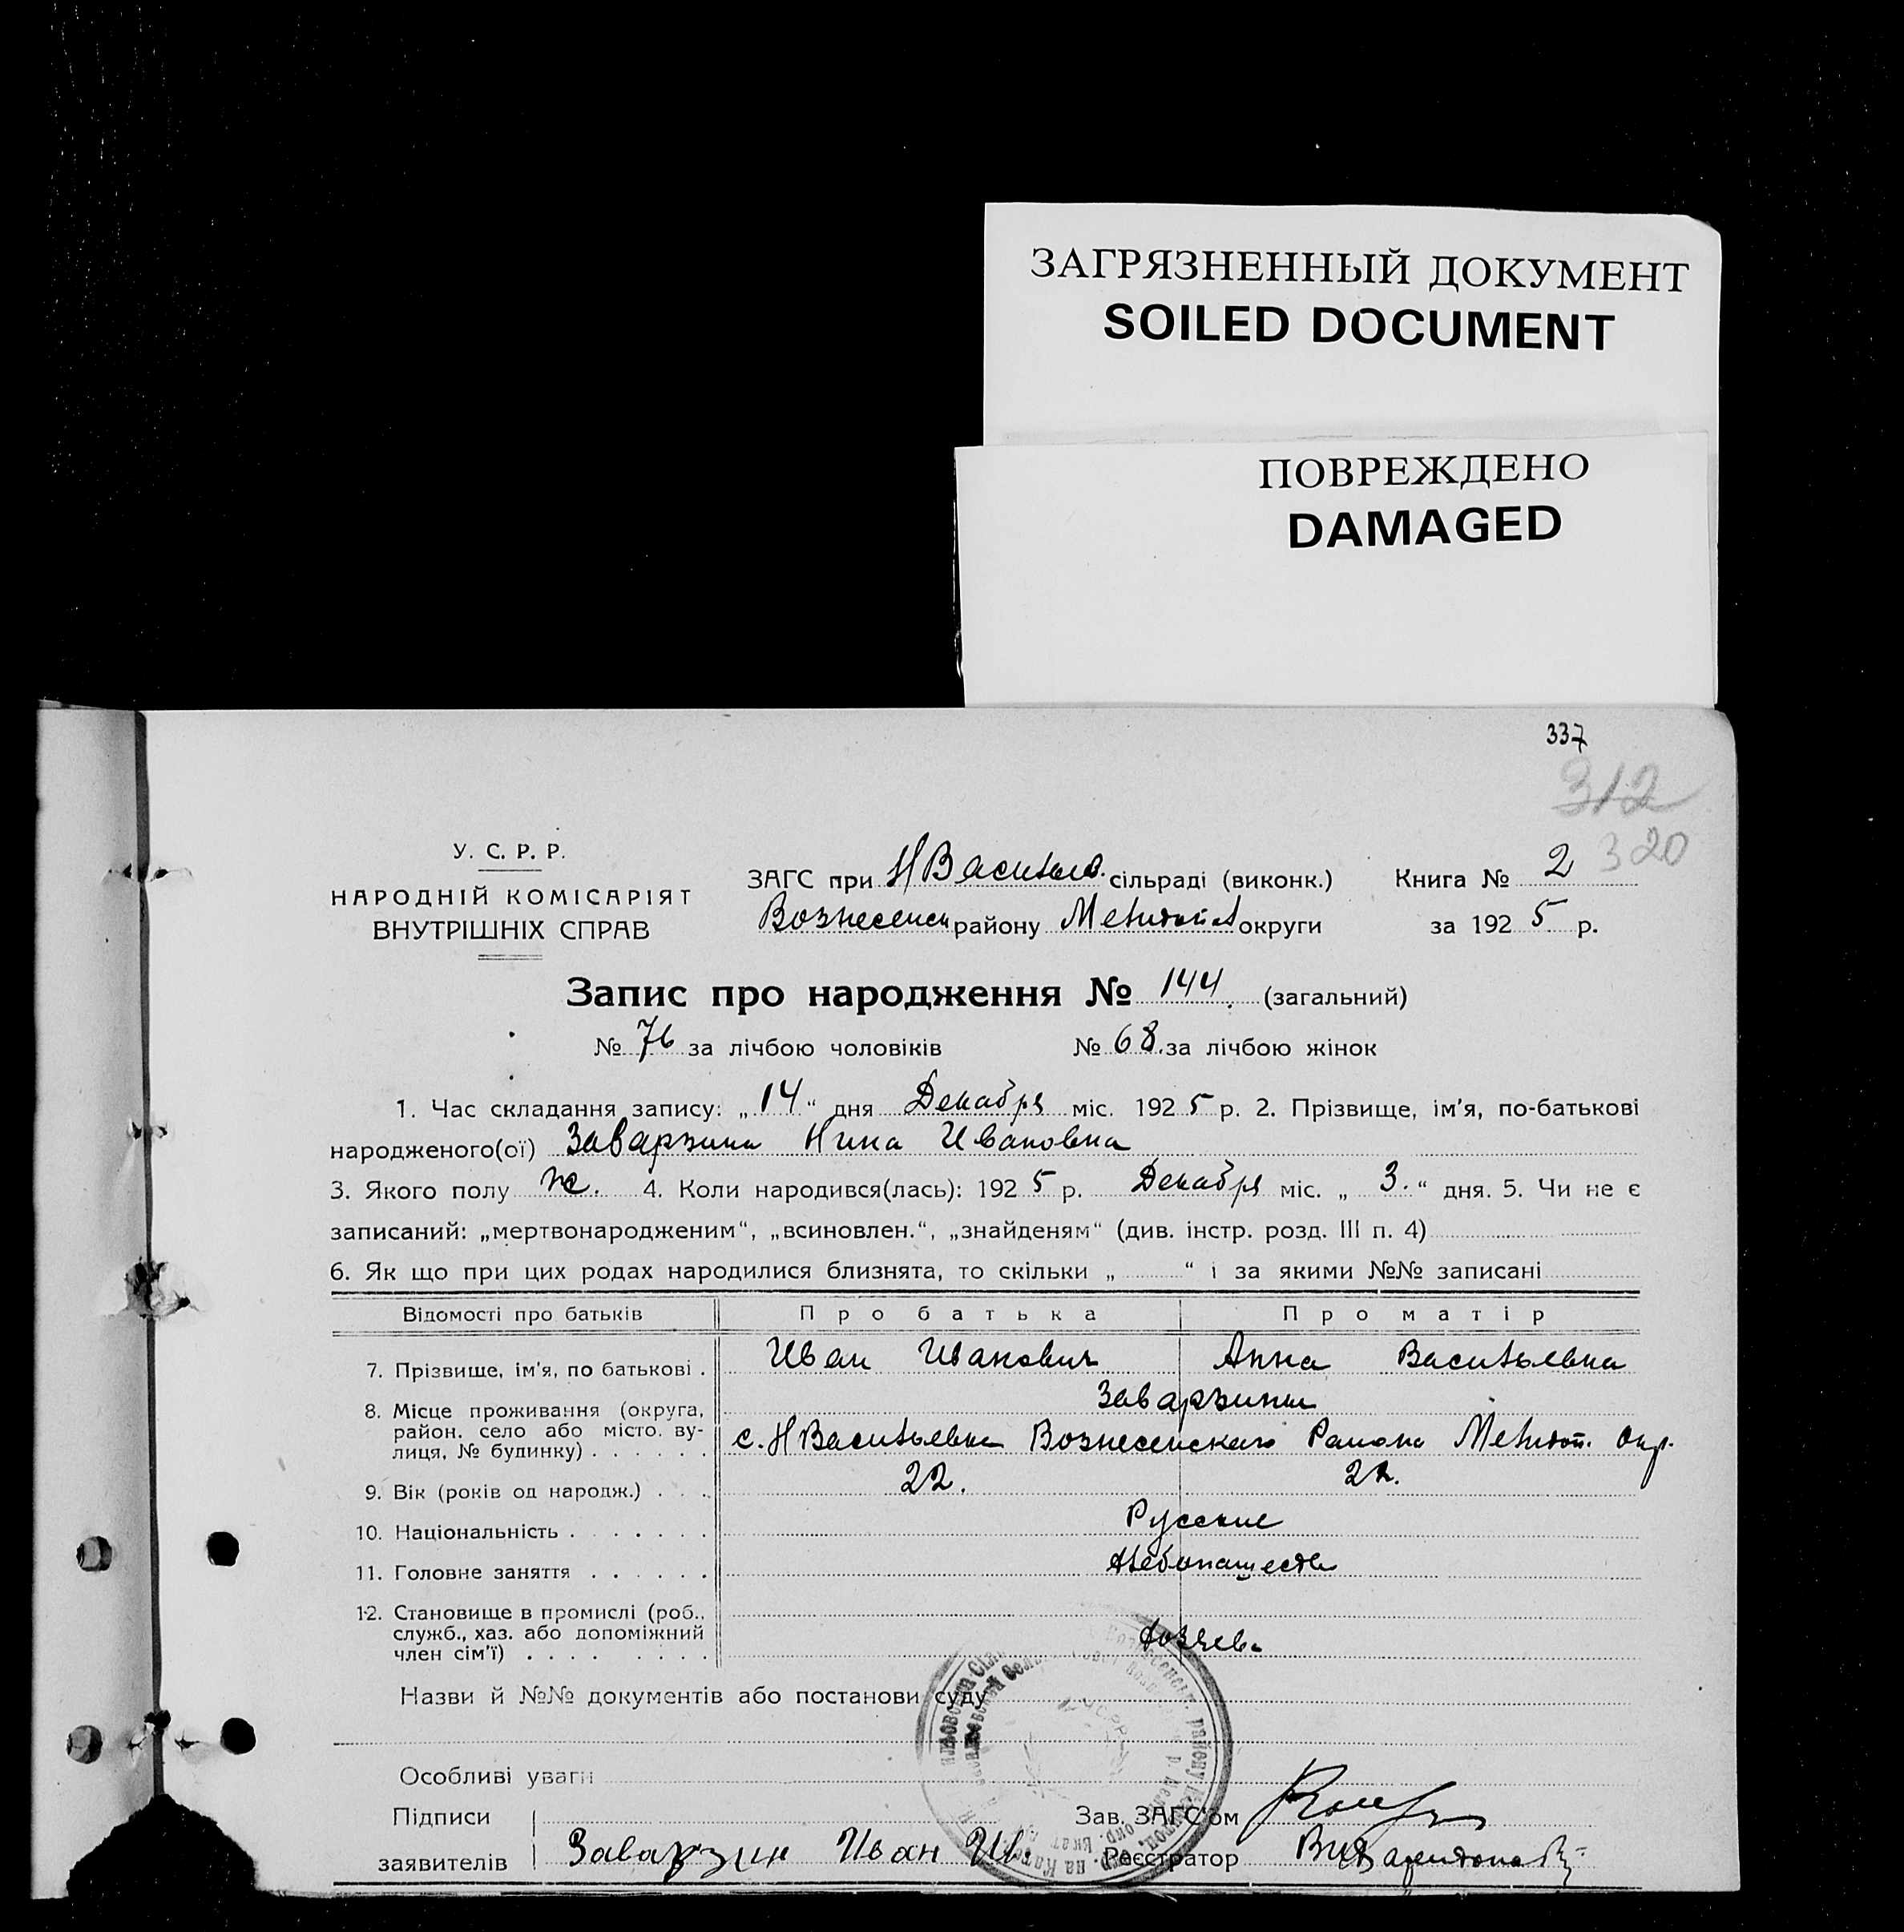 ЗАГРЯЗНЕННЫЙ ДОКУМЕНТ
SOILED DOCUMENT
ПОВРЕЖДЕНО
DAMAGED
337
312
320
У. С. Р. Р.
НАРОДНІЙ КОМІСАРІЯТ
ВНУТРІШНІХ СПРАВ
ЗАГС при НВасильев. сільраді (виконк.) Книга № 2
Вознесенск району Мелитоп округи за 1925 р.
Запис про народження № 144. (загальний)
№ 76 за лічбою чоловіків № 68. за лічбою жінок
1. Час складання запису: „14“ дня Декабря міс. 1925 р. 2. Прізвище, ім'я, по-батькові
народженого(ої) Заварзина Нина Ивановна
3. Якого полу ж. 4. Коли народився(лась): 1925 р. Декабря міс. „3.“ дня. 5. Чи не є
записаний: „мертвонародженим“, „всиновлен.“, „знайденям“ (див. інстр. розд. III п. 4)
6. Як що при цих родах народилися близнята, то скільки „ “ і за якими №№ записані
Відомості про батьків Про батька Про матір
7. Прізвище, ім'я, по батькові . Иван Иванович Анна Васильевна
Заварзины
8. Місце проживання (округа,
район. село або місто. ву-
лиця, № будинку) . . . . . . с. НВасильевка Вознесенскаго Района Мелитоп. Окр.
9. Вік (років од народж.) . . . 22. 22.
10. Національність . . . . . . . Русские
11. Головне заняття . . . . . . Хлебопашество
12. Становище в промислі (роб.,
служб., хаз. або допоміжний
член сім'ї) . . . . . . . . Хозяева
Назви й №№ документів або постанови суду
Особливі уваги
Підписи
заявителів Заварзин Иван Ив.
Зав. ЗАГС'ом
Реєстратор